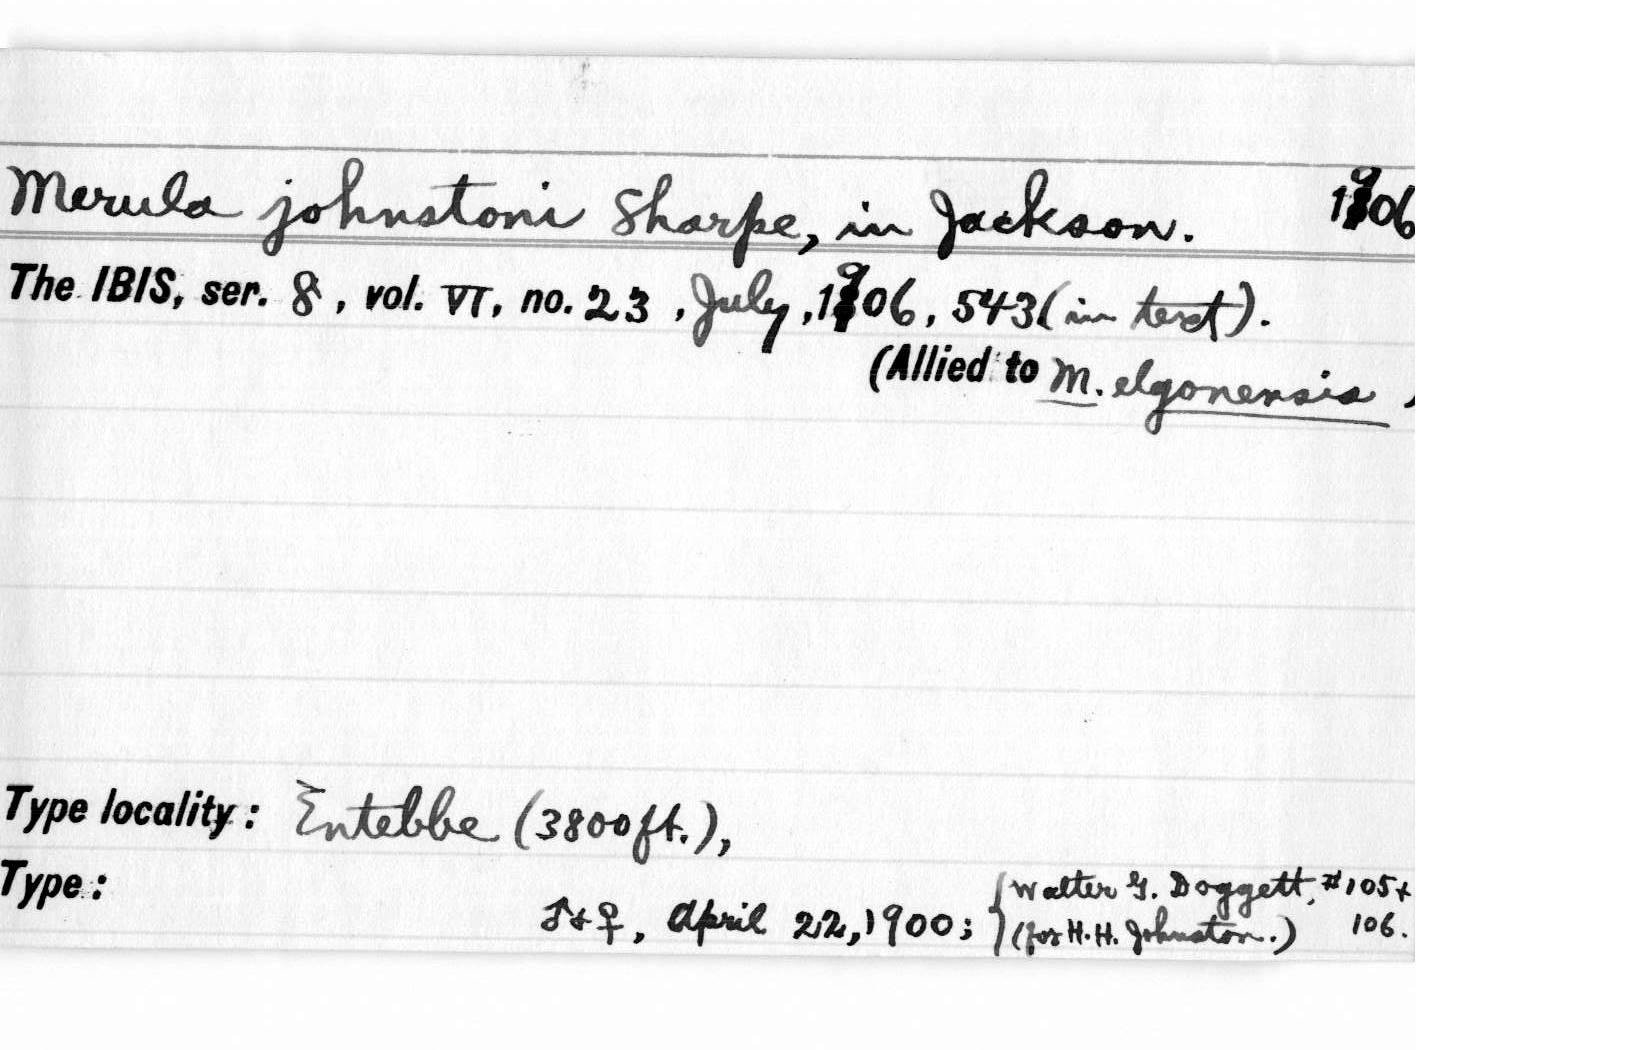 Merula johnstoni Sharpe, in Jackson. 1906
The IBIS, ser. 8, vol. VI, no. 23, July, 1906, 543 (in text).
(Allied to M. elgonensis)
Type locality: Entebbe (3800ft.),
Type:
♂ + ♀, April 22, 1900; { Walter G. Doggett, #105 +
(for H.H. Johnston.) 106.